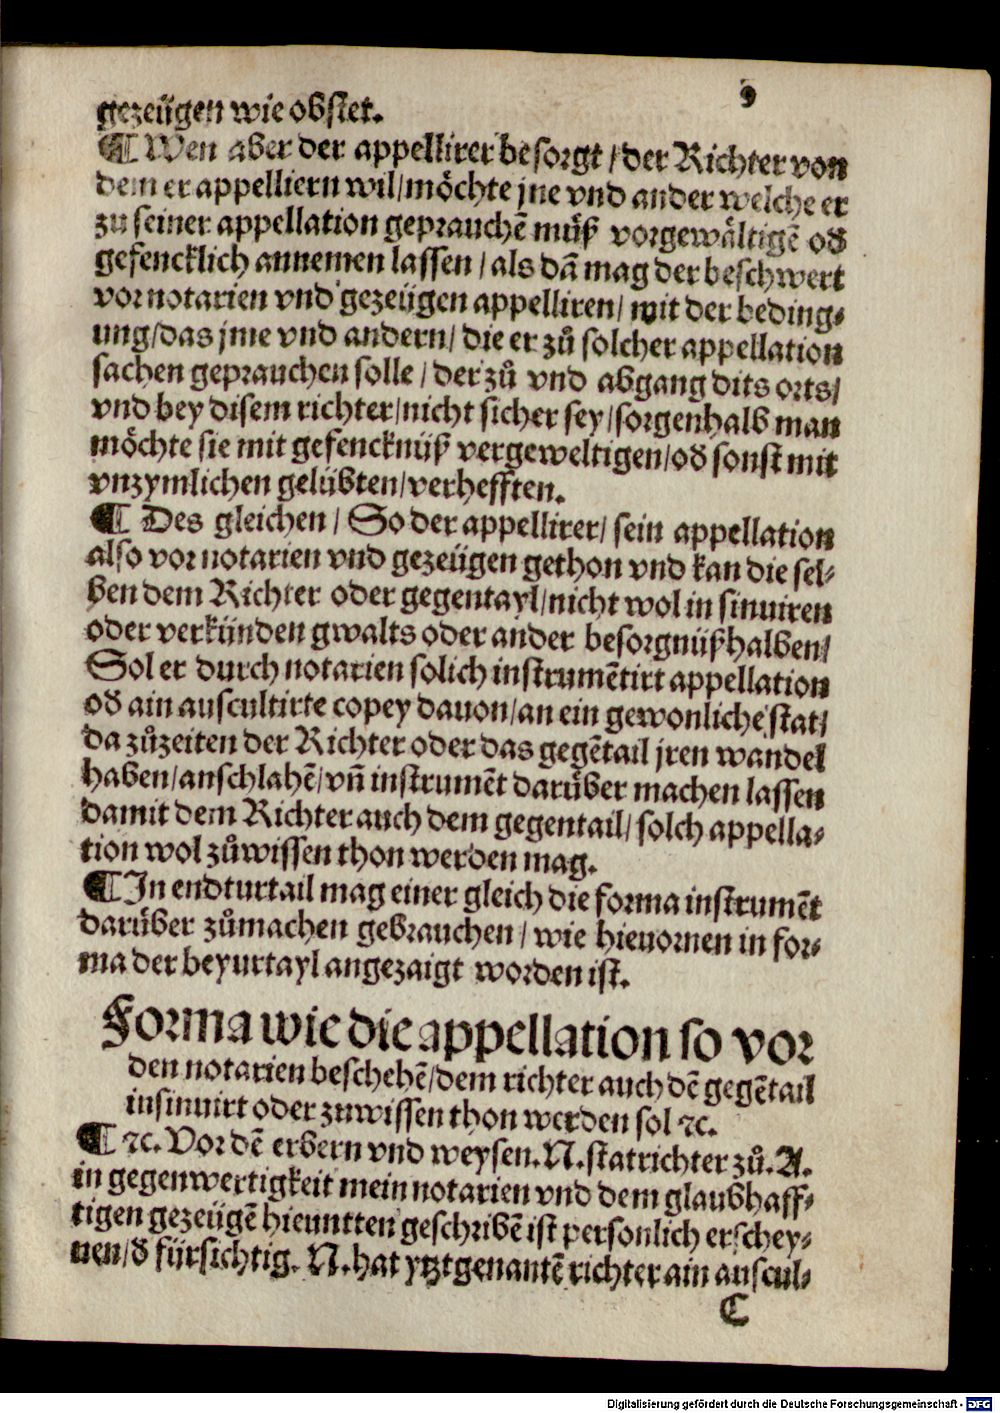 9
gezeügen wie obstet.
¶ Wen aber der appellirer besorgt / der Richter von
dem er appelliern wil / möchte jne vnd ander welche er
zu seiner appellation geprauchē müß vorgewältigē od
gefencklich annemen lassen / als dā mag der beschwert
vor notarien vnd gezeügen appelliren / mit der beding⸗
ung / das jme vnd andern / die er zů solcher appellation
sachen geprauchen solle / der zů vnd abgang dits orts /
vnd bey disem richter / nicht sicher sey / sorgenhalb man
möchte sie mit gefencknüß vergeweltigen / od sonst mit
vnzymlichen gelübten / verhefften.
¶ Des gleichen / So der appellirer / sein appellation
also vor notarien vnd gezeügen gethon vnd kan die sel⸗
ben dem Richter oder gegentayl / nicht wol in sinuiren
oder verkünden gwalts oder ander besorgnüß halben /
Sol er durch notarien solich instrumētirt appellation
od ain auscultirte copey dauon / an ein gewonliche stat /
da zůzeiten der Richter oder das gegētail jren wandel
haben / anschlahē / vñ instrumēt darüber machen lassen
damit dem Richter auch dem gegentail / solch appella⸗
tion wol zůwissen thon werden mag.
¶ In endturtail mag einer gleich die forma instrumēt
darüber zůmachen gebrauchen / wie hieuornen in for⸗
ma der beyurtayl angezaigt worden ist.
Forma wie die appellation so vor
den notarien beschehē / dem richter auch dē gegētail
insinuirt oder zuwissen thon werden sol ꝛc.
¶ ꝛc. Vor dē erbern vnd weysen. N. statrichter zů. A.
in gegenwertigkeit mein notarien vnd dem glaubhaff⸗
tigen gezeügē hieuntten geschribē ist personlich erschey⸗
nen / d fürsichtig. N. hat ytztgenantē richter ain auscul⸗
C
Digitalisierung gefördert durch die Deutsche Forschungsgemeinschaft - DFG